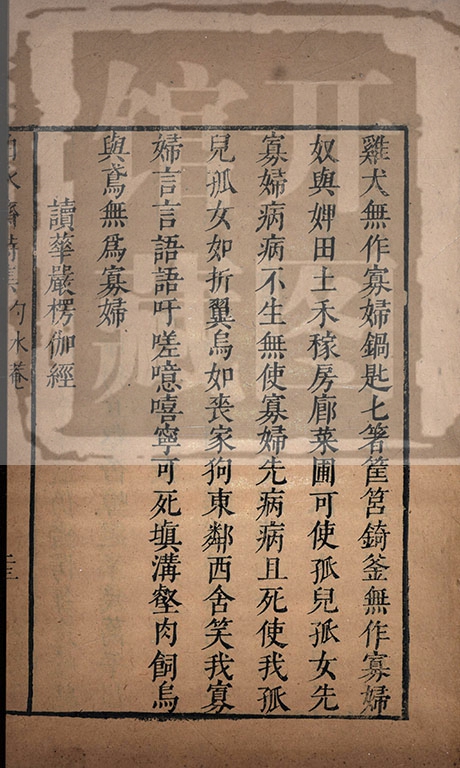 雞犬無作寡婦鍋匙匕箸筐筥錡釜無作寡婦
奴與婢田土禾稼房廊菜圃可使孤兒孤女先
寡婦病病不生無使寡婦先病病且死使我孤
兒孤女如折翼烏如喪家狗東鄰西舍笑我寡
婦言言語語吁嗟噫嘻寧可死填溝壑肉飼烏
與鳶無爲寡婦
讀華嚴楞伽經
勺水庵
開
图
館
藏